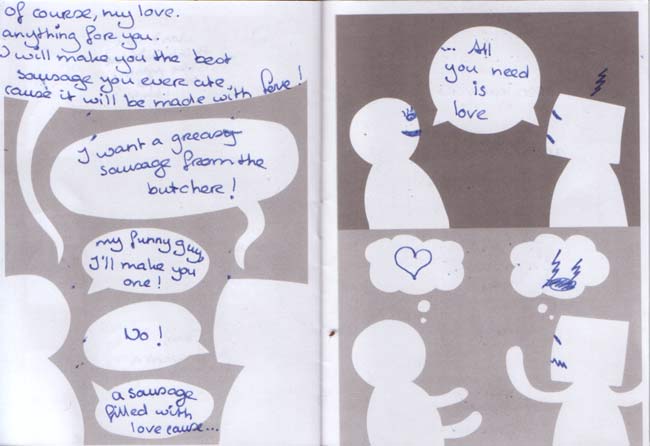 Of course, my love.
anything fore you.
I will make you the best
sausage you evere ate.
cause it will be made with love!
I want a greasy
sausage from the
butchere!
my funny guy,
I'll make you
one!
No!
a sausage
filled with
love cause...
... All
you need
is
love